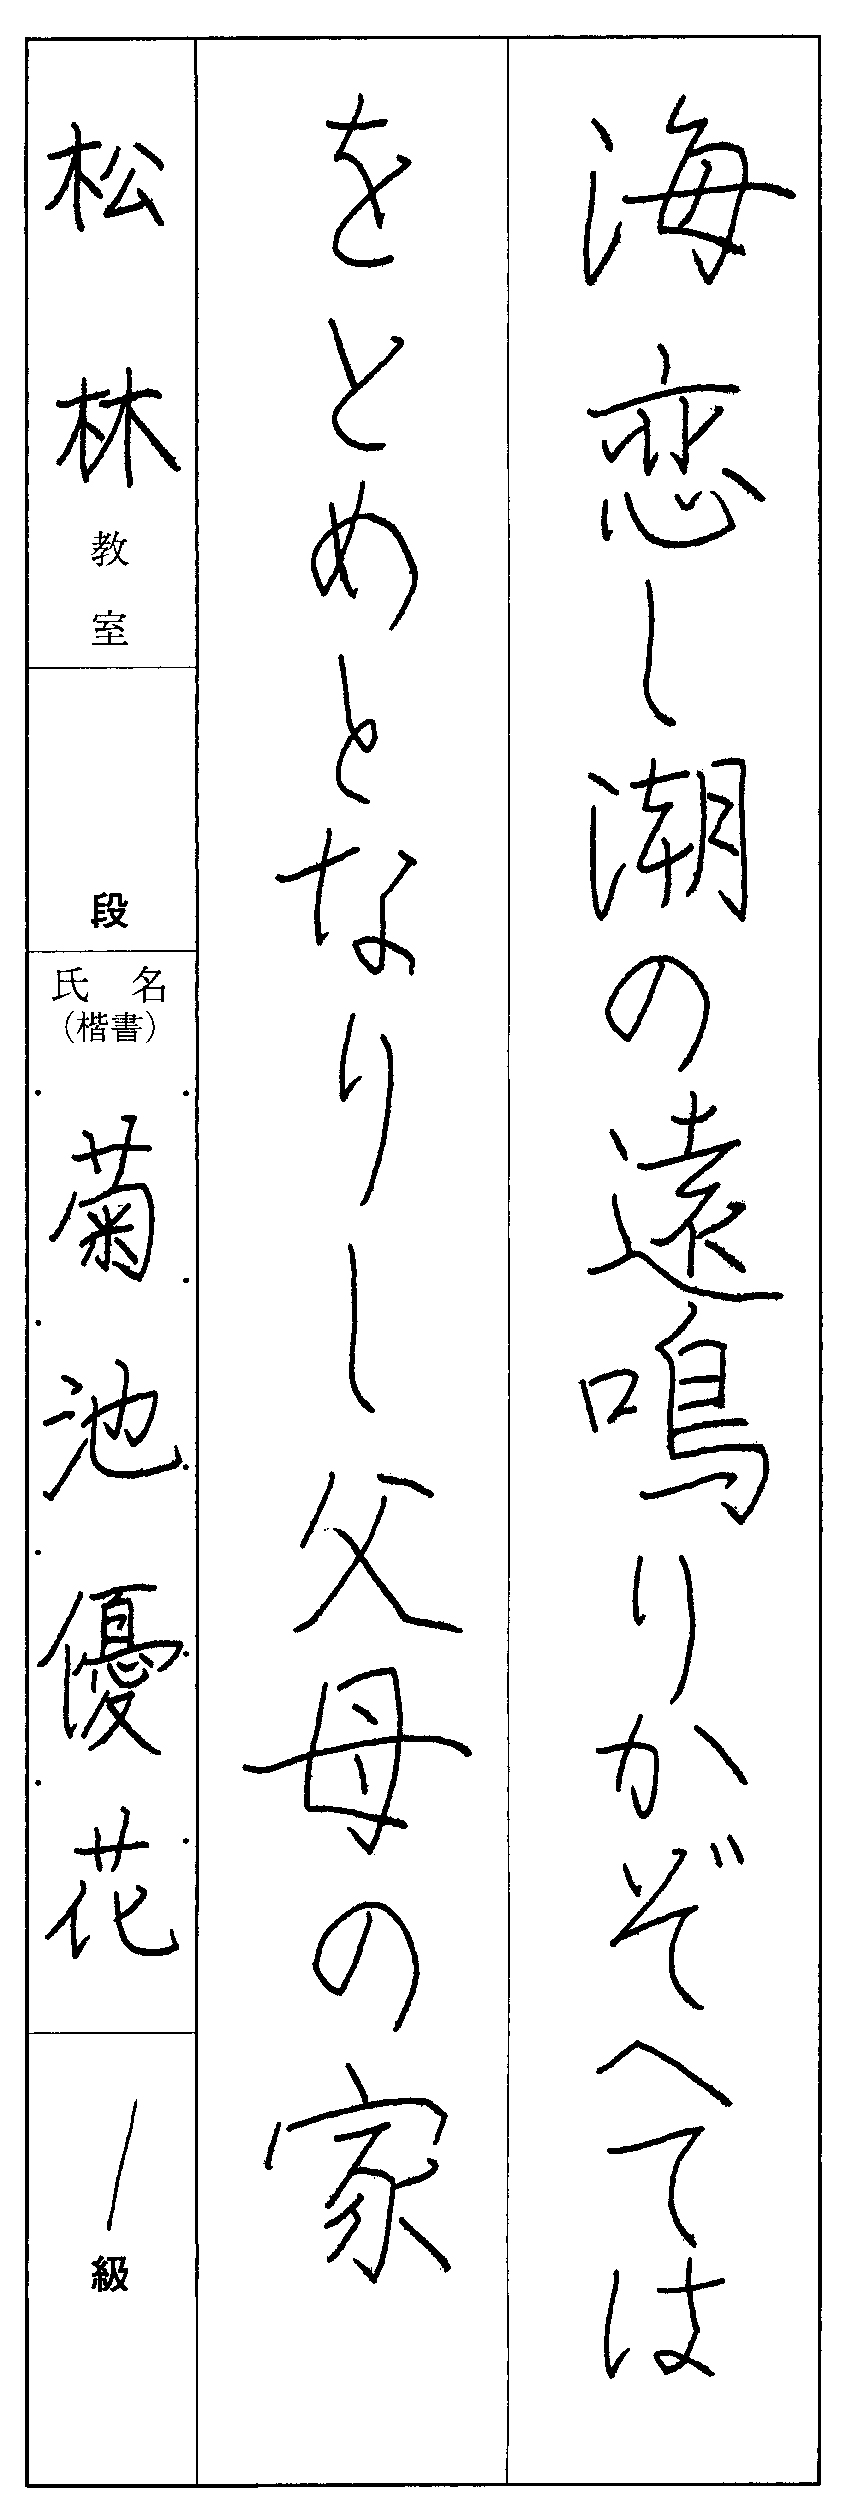 海恋し潮の遠鳴りかぞへては
をとめとなりし父母の家
松林教室
段
氏名
(楷書)
菊池優花
1級